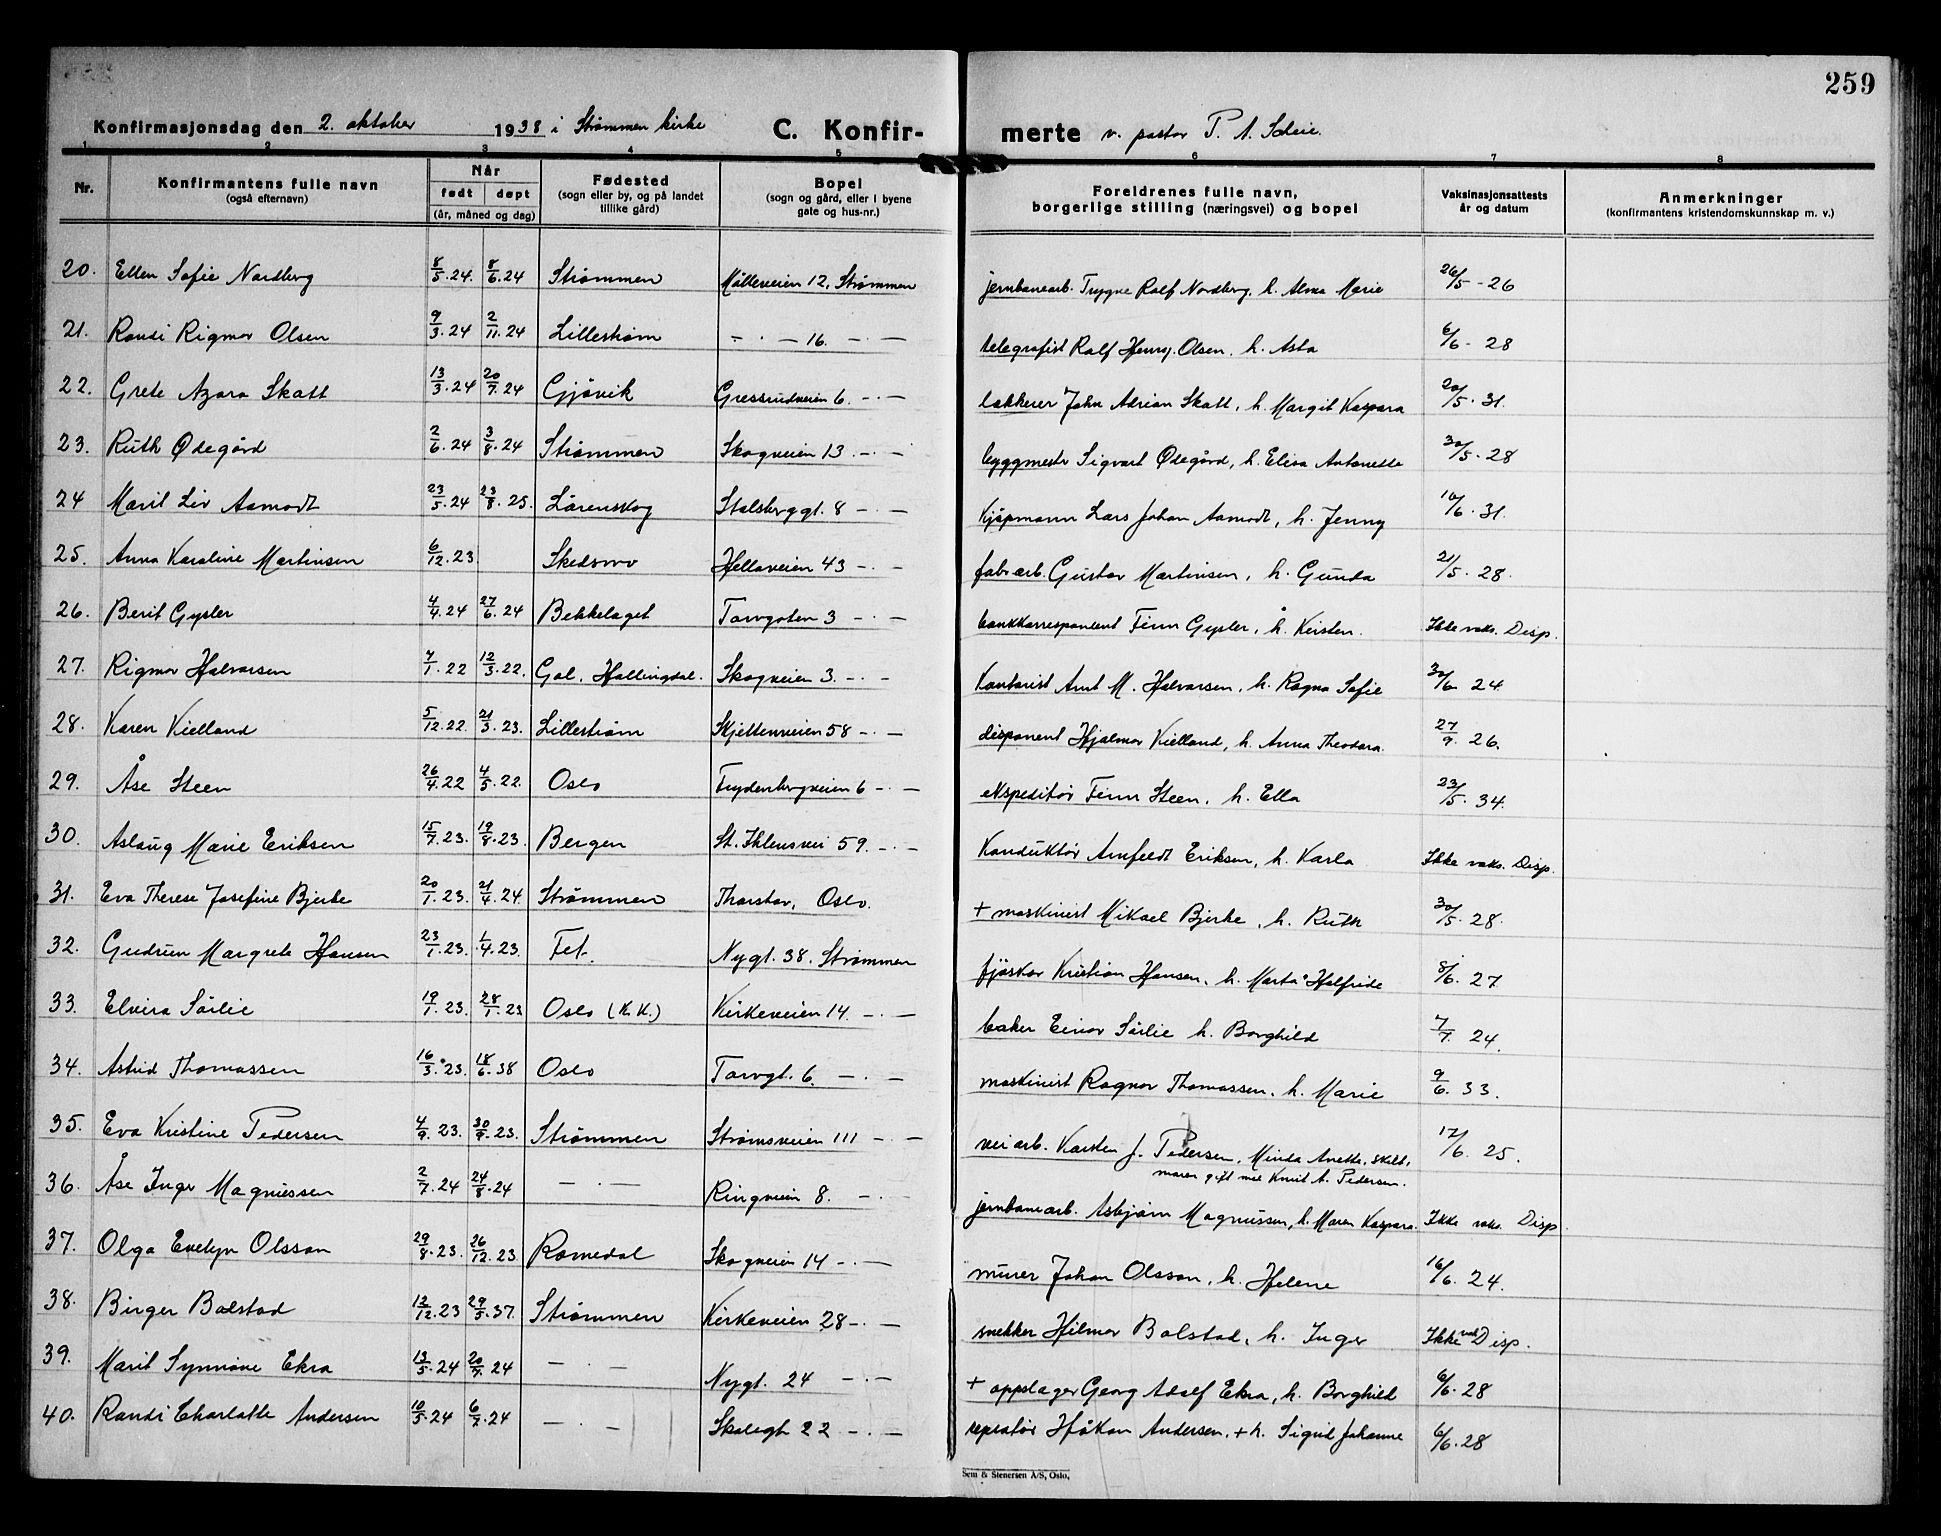 259
Konfirmasjonsdag den 2. oktober 1938 i Strømmen kirke C. Konfir- merte v. pastor P. A.
1 2 3 4 5 6 7 8
Nr. Konfirmantens fulle navn (også efternavn) Når født døpt (år, måned og dag) Fødested (sogn eller by, og på landet tillike gård) Bopel (sogn og gård, eller i byene gate og hus-nr.) Foreldrenes fulle navn, borgerlige stilling (næringsvei) og bopel Vaksinasjonsattests år og datum Anmerkninger (konfirmantens kristendomskunnskap m. v.)
20. Ellen Sofie Nordberg 8/5.24. 8/6.24 Strømmen Mølleveien 12, Strømmen jernbanearb. Trygve Rolf Nordberg, h. Alma Marie 26/5-26
21. Randi Rigmor Olsen 9/3.24 2/11.24 Lillestrøm — · — 16. — · — telegrafist Rolf Henry Olsen, h. Asta 6/6-28
22. Grete Azora Skatt 13/3.24 20/7.24 Gjøvik Gressrudveien 6. — · — lakkerer John Adrian Skatt, h. Margit Kaspara 20/5.31.
23. Ruth Ødegård 2/6.24 3/8.24 Strømmen Skogveien 13 — · — byggmester Sigvart Ødegård, h. Elisa Antonette 30/5.28
24 Marit Liv Aamodt 23/5.24 23/8.25. Lørenskog Stalsberggt. 8 — · — kjøpmann Lars Johan Aamodt, h. Jenny 10/6.31.
25. Anna Karoline Martinsen 6/12.23. Skedsmo Hellaveien 43 — · — fabr.arb. Gustav Martinsen, h. Gunda 21/5.28.
26. Berit Gysler 4/4.24 27/6.24 Bekkelaget Torvgaten 3 — · — bankkorrespondent Finn Gysler, h. Kirsten. Ikke vaks. Disp.
27. Rigmor Halvorsen 7/1.22 12/3.22. Gol, Hallingdal. Skogveien 3. — · — kontorist Arnt M. Halvorsen, h. Ragna Sofie 30/6 24
28. Karen Kielland 5/12.22. 21/3.23. Lillestrøm Skjettenveien 58 — · — disponent Hjalmar Kielland, h. Anna Theodora. 27/9. 26.
29. Åse Steen 26/4.22 4/5.22. Oslo Frydenbergveien 6 — · — ekspeditør Finn Steen, h. Ella 23/5.34.
30. Aslaug Marie Eriksen 15/7.23. 19/8.23. Bergen St. Iklensvei 59. — · — Konduktør Arnfeldt Eriksen, h. Karla Ikke vaks. Disp.
31. Eva Therese Josefine Bjerke 20/1.23. 21/4.24. Strømmen Thorstov, Oslo. + maskinist Mikael Bjerke, h. Ruth 30/5.28.
32. Gudrun Margrete Hansen 23/1.23. 1/4.23. Fet. Nygt. 38. Strømmen fjøskar Kristian Hansen, h. Marta Halfride 8/6.27
33. Elvira Sørlie 19/1.23. 28/1.23 Oslo (K.K.) Kirkeveien 14. — · — baker Einar Sørlie h. Borghild 7/7. 24.
34. Astrid Thomassen 16/3.23. 18/6.38 Oslo Torvgt. 6. — · — maskinist Ragnar Thomassen, h. Marie 9/6. 33.
35. Eva Kristine Pedersen 4/9.23. 30/9.23. Strømmen Strømsveien 111 — · — veiarb. Karsten J. Pedersen, Minda Anette, skilt, 17/6. 25.
moren gift med Knut A. Pedersen.
36. Åse Inger Magnussen 2/7.24 24/8.24 — · — Ringveien 8. — · — jernbanearb. Asbjørn Magnussen, h. Maren Kaspara. Ikke vaks. Disp.
37. Olga Evelyn Olsson 29/8.23. 26/12.23. Romedal Skogveien 14 — · — murer Johan Olsson, h. Helene 16/6. 24.
38. Birger Bolstad 12/12.23 29/5.37. Strømmen Kirkeveien 28 — · — snekker Hilmar Bolstad, h. Inger Ikke vak Disp.
39. Marit Synnøve Ekra 13/5.24 20/7.24 — · — Nygt. 24 — · — + oppslager Georg Adolf Ekra, h. Borghild 6/6.28
40. Randi Charlotte Andersen 10/5.24 6/7.24 — · — Skolegt 22 — · — repratør Håkon Andersen, + h. Sigrid Johanne 6/6.28
Sem & Stenersen A/S, Oslo.